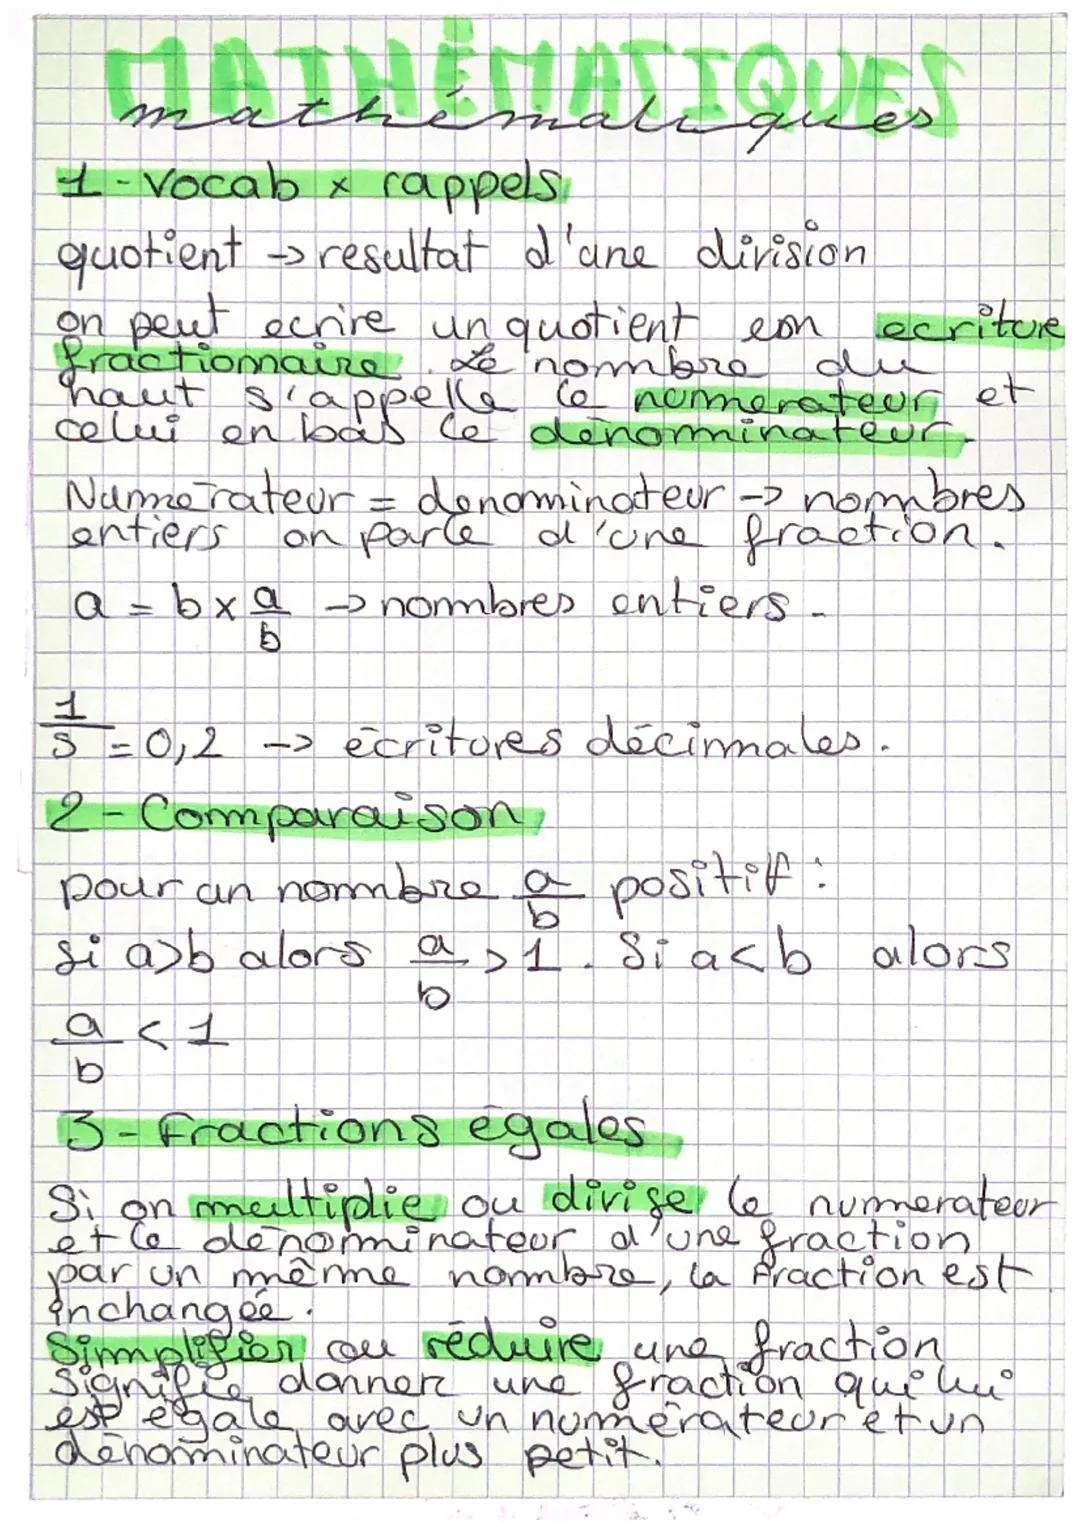 MATHÉMATIQUES
mathématiques
1-vocab x rappels
quotient -> resultat d'une division
on peut ecrire un quotient en ecriture
fractionnaire. Le nombre du
haut s'appelle le numerateur et
celui en bas le dénominateur.
Numerateur = denominateur -> nombres
entiers on parle d'une fraction.
a = b x a/b -> nombres entiers.
1/5 = 0,2 --> écritures décimales.
2-Comparaison
pour un nombre a/b positif :
si a>b alors a/b > 1. Si a<b alors
a/b < 1
3-fractions égales
Si on multiplie ou divise le numerateur
et le dénominateur d'une fraction
par un même nombre, la fraction est
inchangée.
Simplifier ou réduire une fraction
signifie donner une fraction qui lui
est égale avec un numérateur et un
dénominateur plus petit.